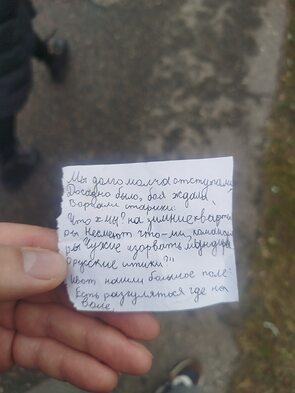 Мы долго молча отступали
Досадно было, боя ждали,
Ворчали старики:
Что ж мы? на зимние кварти
ры Несмеют что-ли, команди
ры Чужие изорвать мундиры
о русские штыки?"
И вот нашли большое поле:
Есть разгуляться где на
воле,